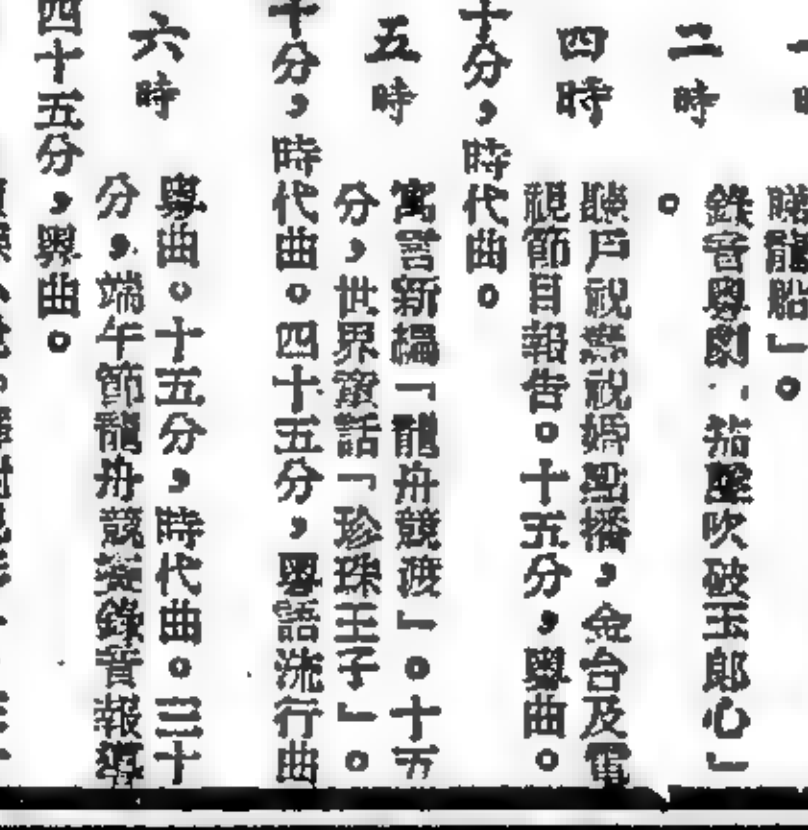 睇龍船」。
二時
錄音粵劇「笳聲吹破玉郎心」
。
四時
聽戶祝壽祝婚點播,金台及電
視節目報告。十五分,粵曲。
十分,時代曲。
五時
寓言新編「龍舟競渡」。十五
分,世界童話「珍珠王子」。
十分,時代曲。四十五分,粵語流行曲
六時
粵曲。十五分,時代曲。三十
分,端午節龍舟競賽錄音報導
四十五分,粵曲。